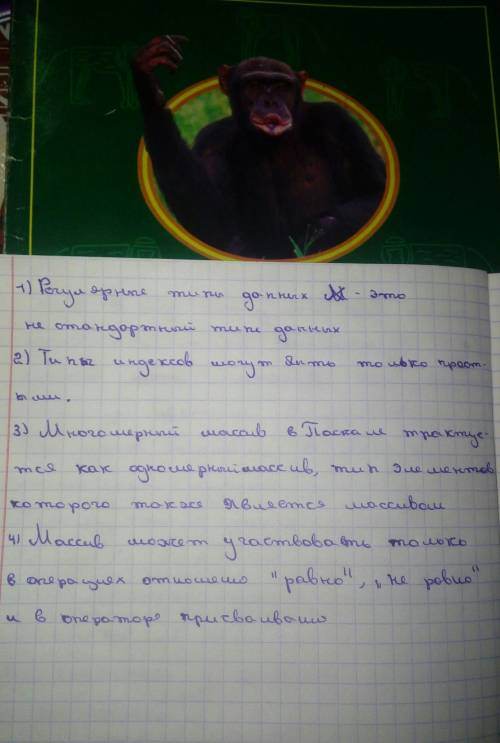 1) Регулярные типы данных - это
не стандартный типе данных
2) Типы индексов могут быть только прост-
ыми.
3) Многомерный массив в Паскале тракцуе-
тся как одномерный массив, тип элементов
которого также является массивом
4) Массив может участвовать только
в операциях отношено "равно", "не ровно"
и в операторе присваивано